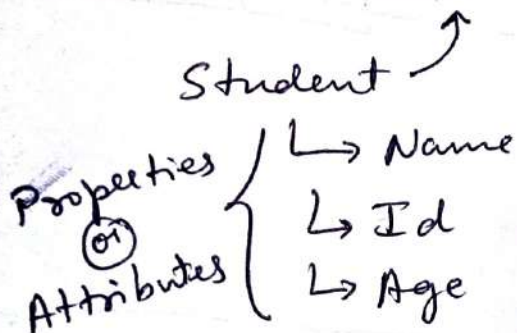 Student
Properties
or
Attributes
Name
Id
Age